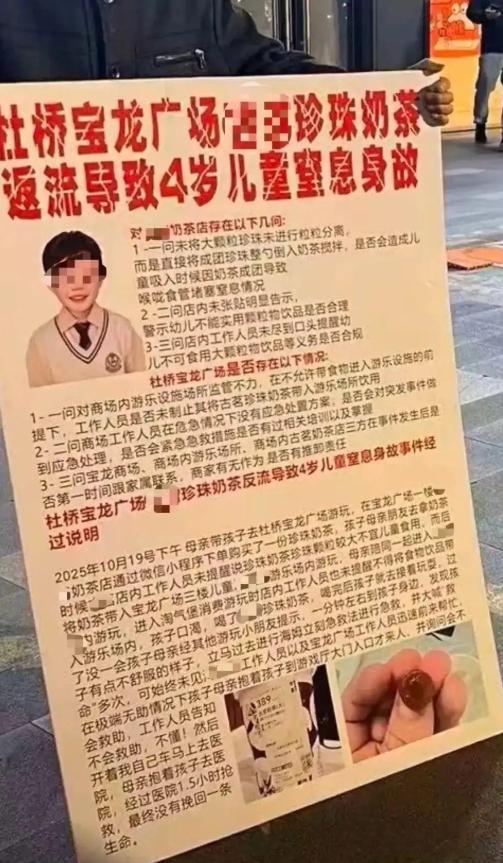 杜桥宝龙广场 珍珠奶茶
返流导致4岁儿童窒息身故
对 奶茶店存在以下几问:
1-一问未将大颗粒珍珠未进行粒粒分离,
而是直接将成团珍珠整勺倒入奶茶搅拌,是否会造成儿
童吸入时候因奶茶成团导致
喉咙食管堵塞窒息情况
2-二问店内未张贴明显告示,
警示幼儿不能实用颗粒物饮品是否合理
3-三问店内工作人员未尽到口头提醒幼
儿不可食用大颗粒物饮品等义务是否合规
杜桥宝龙广场是否存在以下情况:
1-一问对商场内游乐设施场所监管不力,在不允许带食物进入游乐设施的前
提下,工作人员是否未制止其将古茗珍珠奶茶带入游乐场所饮用
2-二问商场工作人员在危急情况下没有应急处置方案,是否会对突发事件做
到应急处理,是否会紧急急救措施是否有过相关培训以及掌握
3-三问宝龙商场、商场内游乐场所、商场内古茗奶茶店三方在事件发生后是
否第一时间跟家属联系,商家有无作为 是否有推卸责任
杜桥宝龙广场 珍珠奶茶反流导致4岁儿童窒息身故事件经
过说明
2025年10月19号下午 母亲带孩子去杜桥宝龙广场游玩,在宝龙广场一楼
奶茶店通过微信小程序下单购买了一份珍珠奶茶,孩子母亲朋友去拿奶茶
时候 店内工作人员未提醒说珍珠奶茶珍珠颗粒较大不宜儿童食用,而后
将奶茶带入宝龙广场三楼儿童 游乐场内游玩,母亲陪同一起进入
内游玩,进入淘气堡消费游玩时店内工作人员也未提醒不得将食物饮品带
入游乐场内,孩子口渴,喝了 珍珠奶茶,喝完后孩子就去接着玩耍,过
了没一会孩子母亲经其他游玩小朋友提示,一分钟左右到孩子身边,发现孩
子有点不舒服的样子,立马过去进行海姆立刻急救法进行急救,并大喊`救
命`多次,可始终未见 工作人员以及宝龙广场工作人员迅速前来帮忙,
在极端无助情况下孩子母亲抱着孩子到游戏厅大门入口才来人,并询问会不
会救助,工作人员告知
不会救助,不懂!然后
开着我自己车马上去医
院,母亲抱着孩子去医
院,经过医院1.5小时抢
救,最终没有挽回一条
生命。
389